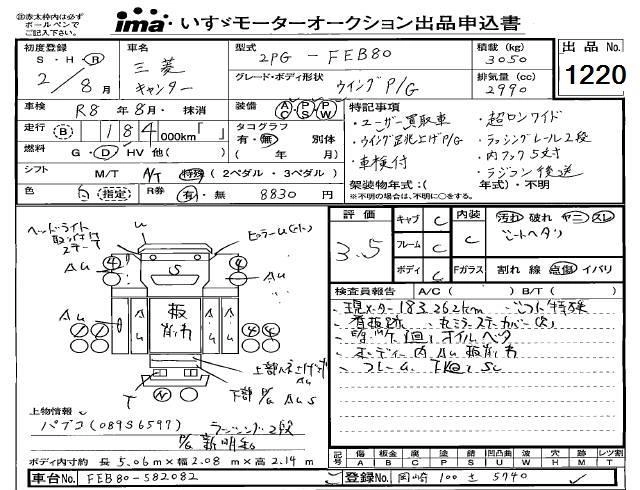 ㊟赤太枠内は必ず
ボールペンで
ご記入下さい。
ima いすゞモーターオークション出品申込書
初度登録
S・H・Ⓡ
2/8月
車名
三菱
キャンター
型式 2PG-FEB80
グレード・ボディ形状 ウイングP/G
積載 (kg)
3050
排気量 (cc)
2990
出品 No.
1220
車検 R8年8月・抹消
走行 Ⓑ 184,000km「 」
燃料 G・Ⓓ HV 他( )
シフト M/T A/T 特殊 (2ペダル・3ペダル)
色 (指定) R券 有・無 8830円
装備 AC PS PW
タコグラフ
有・無 別体
( 年 月)
特記事項
・ユーザー買取車
・ウイング足地上げP/G
・車検付
・超ロンワイド
・ラッシングレール2段
・内フック5寸
・ラジコン後送
架装物年式:( 年式)・不明
※不明の場合は、不明に○をする。
ヘッドライト
取り付け
ステー
U
ピラーU(ヒト)
AU
S
AU
板
削れ
AU
上部
AU
下部 P/G AU S
T
N
上物情報
パブコ(089S6597) ラッシング2段
P/G 新明和
ボディ内寸約 長5.06m×幅2.08m×高2.14m
車台No. FEB80-582082
評価
3.5
キャブ C
フレーム C
ボディ C
内装
C
Fガラス
汚れ 破れ ヤニ スレ
シートヘタリ
割れ 線 点傷 イバリ
検査員報告 A/C( ) B/T( )
・現メーター183,262km ・シフト特殊
・看板跡
・オイルベタ
・ボディー内AU 板削れ
・フレーム、下回りSC
記号
傷 A
板金 B
腐 C
塗 P
錆 S
凹凸曲 U
波 W
穴 H
痛 M
レツ割 T
登録No. 岡崎 100 を 5740